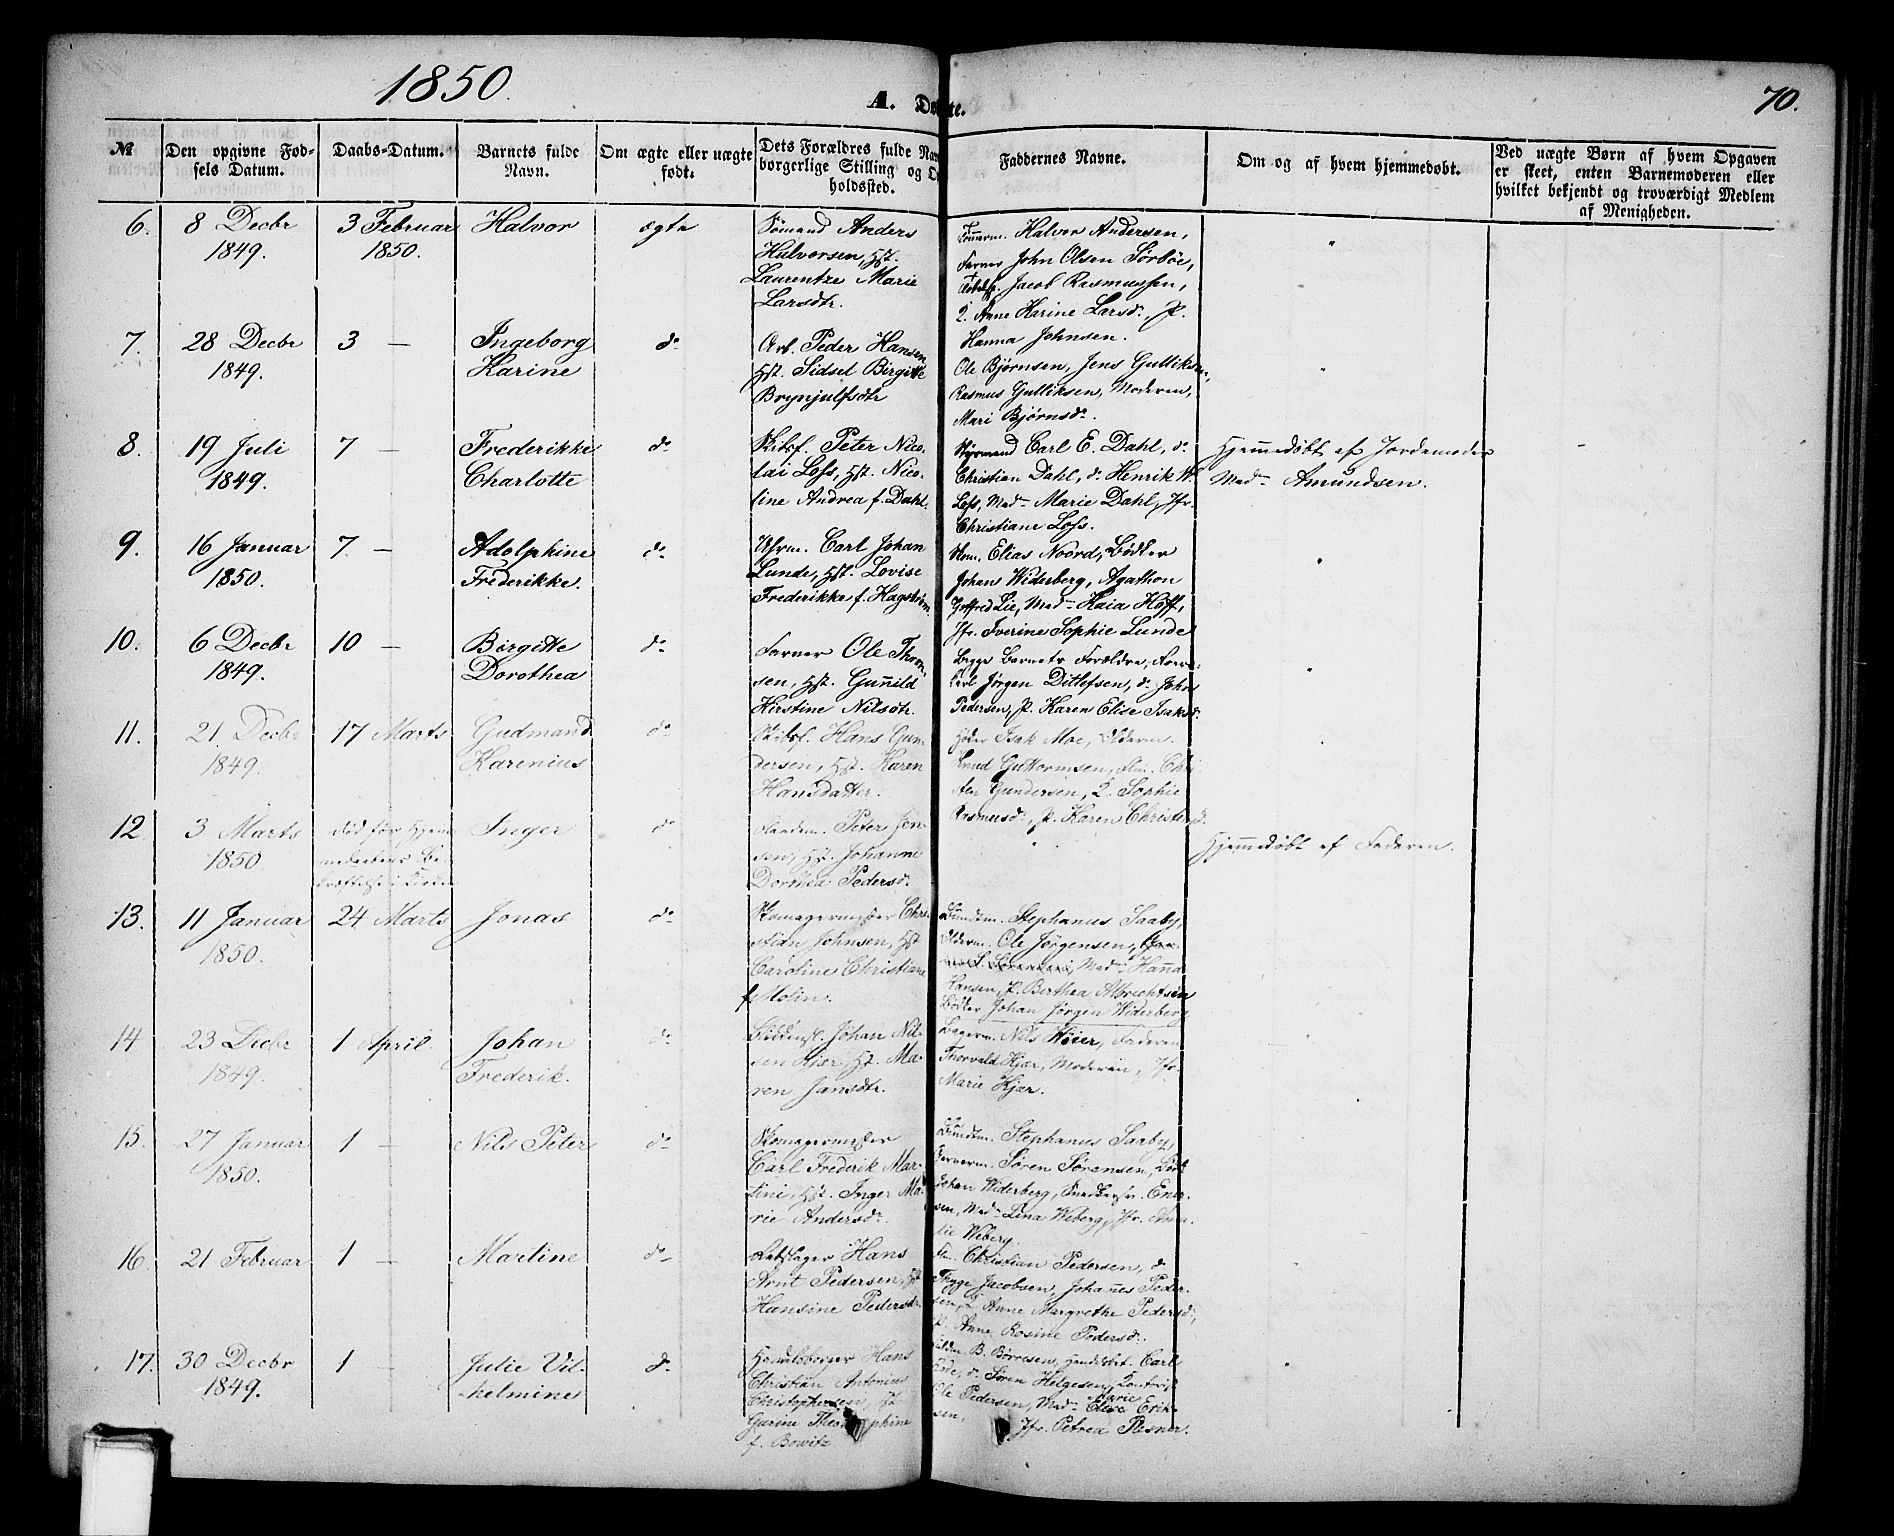 1850.
A. Døbte.
70.
№
Den opgivne Fød-
sels Datum.
Daabs-Datum.
Barnets fulde
Navn.
Om ægte eller uægte
født.
Dets Forældres fulde Nav
borgerlige Stilling og O
holdssted.
Faddernes Navne.
Om og af hvem hjemmedøbt.
Ved uægte Børn af hvem Opgaven
er skeet, enten Barnemoderen eller
hvilket bekjendt og troværdigt Medlem
af Menigheden.
6.
8 Decbr
1849.
3 Februar
1850.
Halvor
ægte
Sømand Anders
Halvorsen, Hst.
Laurentze Marie
Larsdtr.
Tømerm. Halvor Andersen,
Farver John Olsen Sörböe,
Jacob Rasmussen,
2. Anne Karine Larsd., P.
Hanna Johnsen.
7.
28 Decbr
1849.
3 —
Ingeborg
Karine
do
Arb. Peder Hansen
Hst. Sidsel Birgitte
Brynjulfsdtr
Ole Bjørnsen, Jens Gulliksen,
Rasmus Gulliksen, Moderen,
Mari Bjørnsd.
8.
19 Juli
1849.
7 —
Frederikke
Charlotte
do
Skibsf. Peter Nico-
lai Loss, Hst. Nico-
line Andrea f. Dahl.
Styrmand Carl E. Dahl, do
Christian Dahl, do Henrik W.
Loss, Mad. Marie Dahl, Jfr.
Christiane Loss.
Hjemmedøbt af Jordemoder
Mad. Amundsen.
9.
16 Januar
1850.
7 —
Adolphine
Frederikke.
do
Uhrm. Carl Johan
Lunde, Hst. Lovise
Frederikke f. Hagström
Skom. Elias Noord, Bødker
Johans Widerberg, Agathon
Gotfred Lie, Mad. Kaia Hoff,
Jfr. Iverine Sophie Lunde
10.
6 Decbr
1849.
10 —
Birgitte
Dorothea
do
Farver Ole Thom-
sen, Hst. Gunild
Kirstine Nilsdtr.
Begge Barnets Forældre,
Jørgen Ditlefsen, do Johns
Pedersen, P. Karen Elise Isaksd.
11.
21 Decbr
1849.
17 Marts
Gudmand
Karenius
do
Skibsf. Hans Gun-
dersen, Hst. Karen
Hansdatter.
Isak Moe, Olderm.
Knud Guttormsen, Chri
sten Gundersen, 2. Sophie
Rasmusd., P. Karen Christensd.
12.
3 Marts
1850
død før Hjem
medøbens Be-
kræftelse i Kirken
Inger
do
Peter Jen-
sen, Hst. Johanne
Dorthea Pedersd.
Hjemmedøbt af Faderen.
13.
11 Januar
1850.
24 Marts
Jonas
do
Skomagermester Chri-
stian Johnsen, Hst
Caroline Christiane
f. Molin.
Bundtm. Stephanus Saaby,
Olderm. Ole Jørgensen,
S. Sörensen, Mad. Hanna
Hansen, P. Berthea Albrechtsen
Bødker Johan Jörgen Widerberg
14
23 Decbr
1849.
1 April.
Johan
Frederik.
do
Johan Nil-
sen Kjær, Hst. Ma-
ren Jansdtr.
Bagerm. Nils Höier, Faderen
Thorvald Kjær, Moderen, Jfr.
Marie Kjær.
15.
27 Januar
1850.
1 —
Nils Peter
do
Skomagermester
Carl Frederik Mar-
tini, Hst. Inger Ma-
rie Andersd.
Bundtm. Stephanus Saaby,
Garverm. Søren Sørensen, Bødk.
Johan Widerberg, Snedkersv. Ener-
sen, Mad. Lina Weberg, Jfr. Ama-
lie Weberg.
16.
21 Februar
1 —
Martine
do
Rebslager Hans
Arnt Pedersen, Hst
Hansine Pedersdtr.
Christian Pedersen, do
Thyge Jacobsen, Johanes Peder-
sen, 2 Anne Margrethe Pedersd.,
P. Anne Rosine Pedersd.
17.
30 Decbr
1849.
1 —
Julie Vil-
helmine
do.
Handelsborger Hans
Christian Antonius
Christophersen, Hst
Gurine Theodorphine
f. Bowitz
B. Börresen, Handelsbet. Carl
do Søren Helgesen, Kontorist
Ole Pedersen, Mad. Elise Marie Erik-
sen,
Jfr. Petrea Plesner.